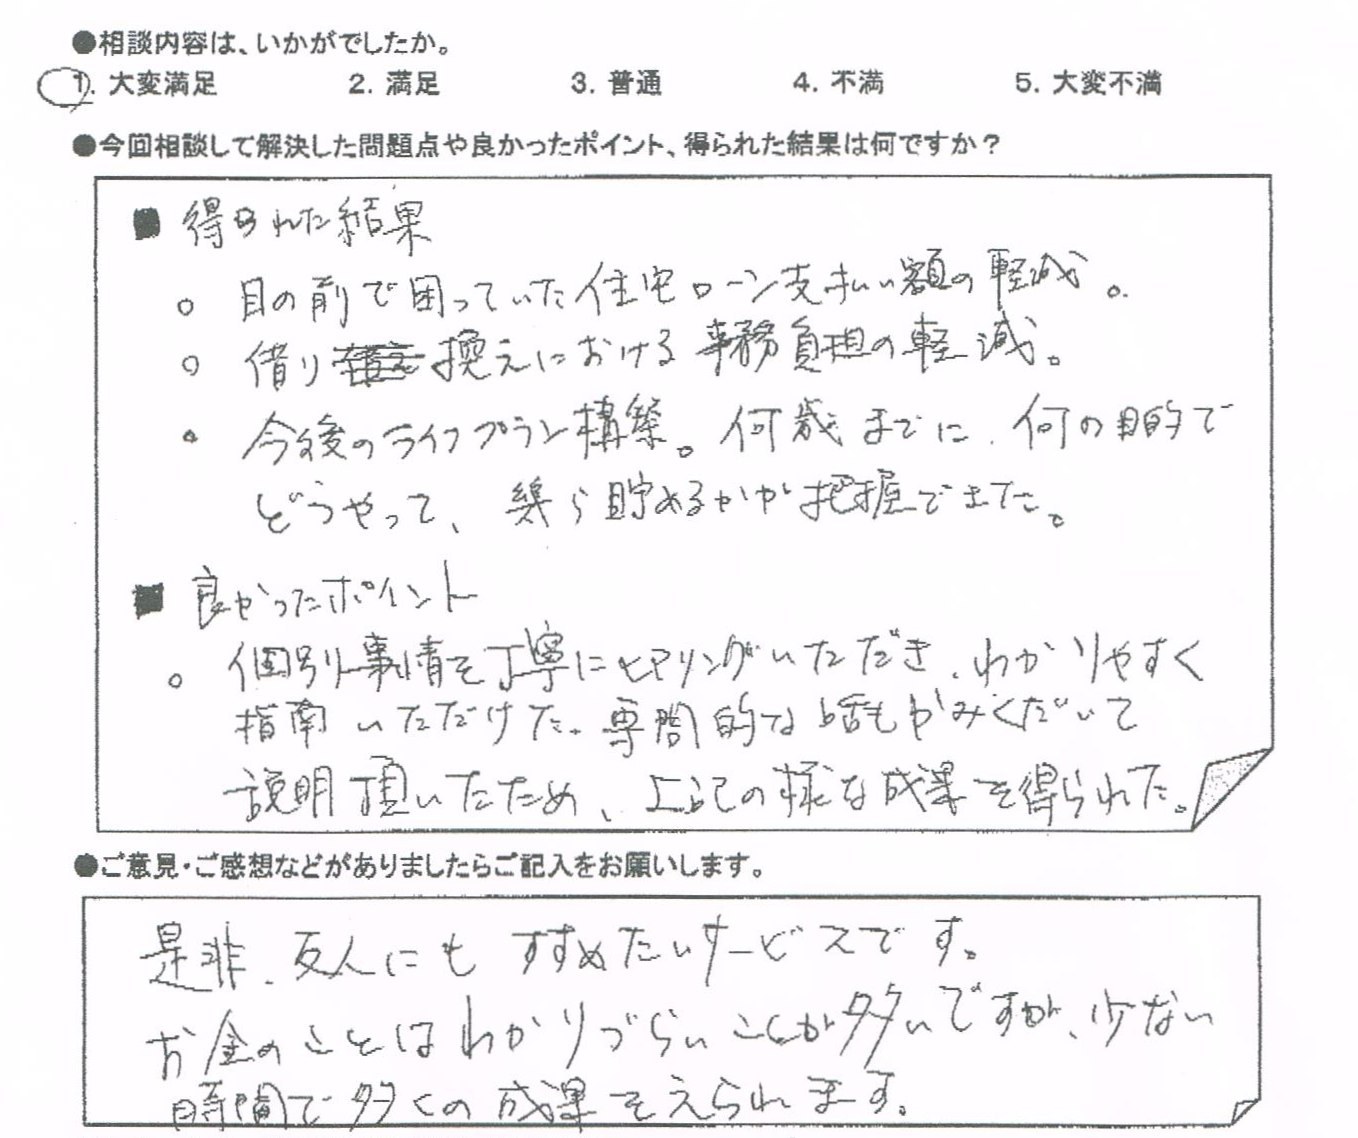 ●相談内容は、いかがでしたか。
1. 大変満足 2. 満足 3. 普通 4. 不満 5. 大変不満
●今回相談して解決した問題点や良かったポイント、得られた結果は何ですか？
■ 得られた結果
○ 目の前で困っていた住宅ローン支払い額の軽減。
○ 借り換えにおける事務負担の軽減。
○ 今後のライフプラン構築。何歳までに、何の目的で
どうやって、幾ら貯めるかが把握できた。
■ 良かったポイント
○ 個別事情を丁寧にヒアリングいただき、わかりやすく
指南いただけた。専門的な話もかみくだいて
説明頂いたため、上記の様な成果を得られた。
●ご意見・ご感想などがありましたらご記入をお願いします。
是非、友人にもすすめたいサービスです。
お金のことはわかりづらいことが多いですが、少ない
時間で多くの成果をえられます。